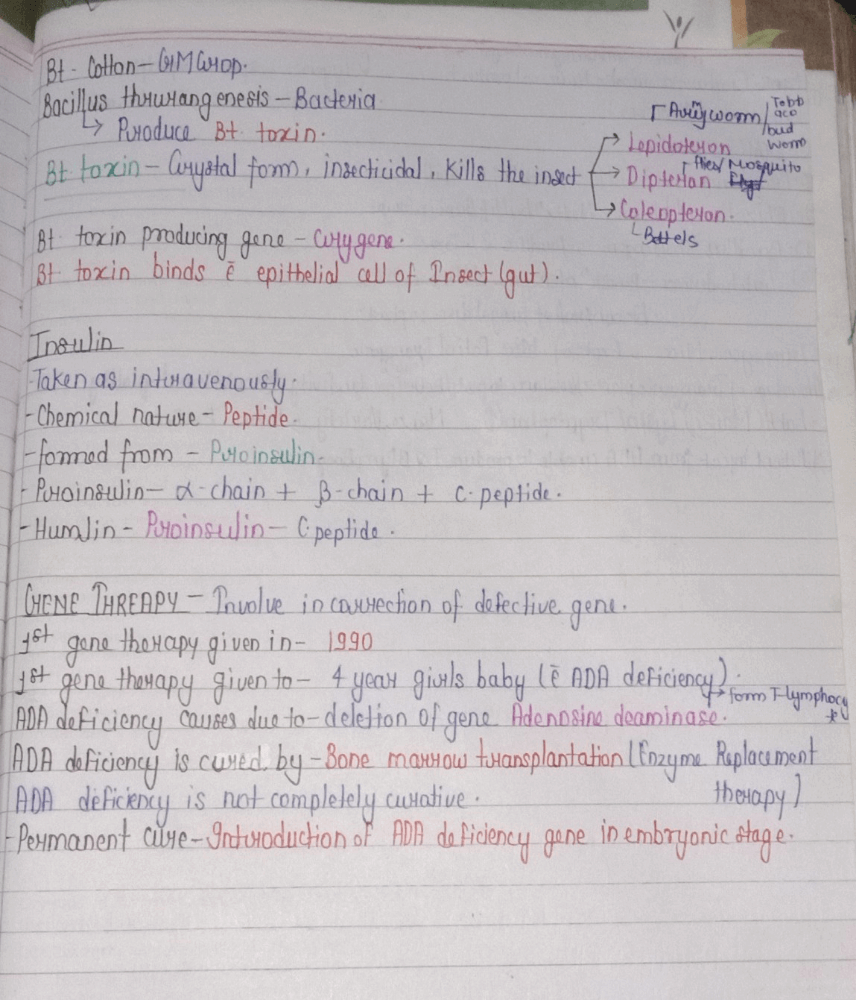 Bt - Cotton - GM Crop.
Bacillus thrurangenesis - Bacteria
↳ Produce Bt toxin.
[Armyworm/Tobbaco/bud worm
Bt toxin - Crystal form, insecticidal, Kills the insect
→ Lepidoteron
→ Dipteran [flies/Mosquito
→ Coleopteron.
└ Bettels
Bt toxin producing gene - Cry gene.
Bt toxin binds c̄ epithelial cell of Insect (gut).
Insulin
- Taken as intravenously.
- Chemical nature - Peptide.
- formed from - Proinsulin.
- Proinsulin - α-chain + β-chain + C-peptide.
- Humlin - Proinsulin - C peptide.
GENE THREAPY - Involve in correction of defective gene.
1st gene therapy given in - 1990
1st gene therapy given to - 4 year girls baby (c̄ ADA deficiency).
→ form T-lymphocyte
ADA deficiency causes due to - deletion of gene Adenosine deaminase.
ADA deficiency is cured by - Bone marrow transplantation [Enzyme Replacement therapy]
ADA deficiency is not completely curative.
- Permanent cure - Introduction of ADA deficiency gene in embryonic stage.